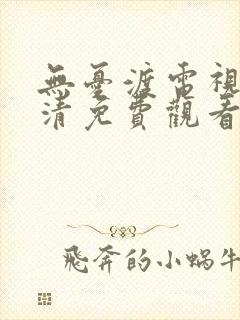 無憂渡電視
清免費觀看
飛奔的小蝸牛